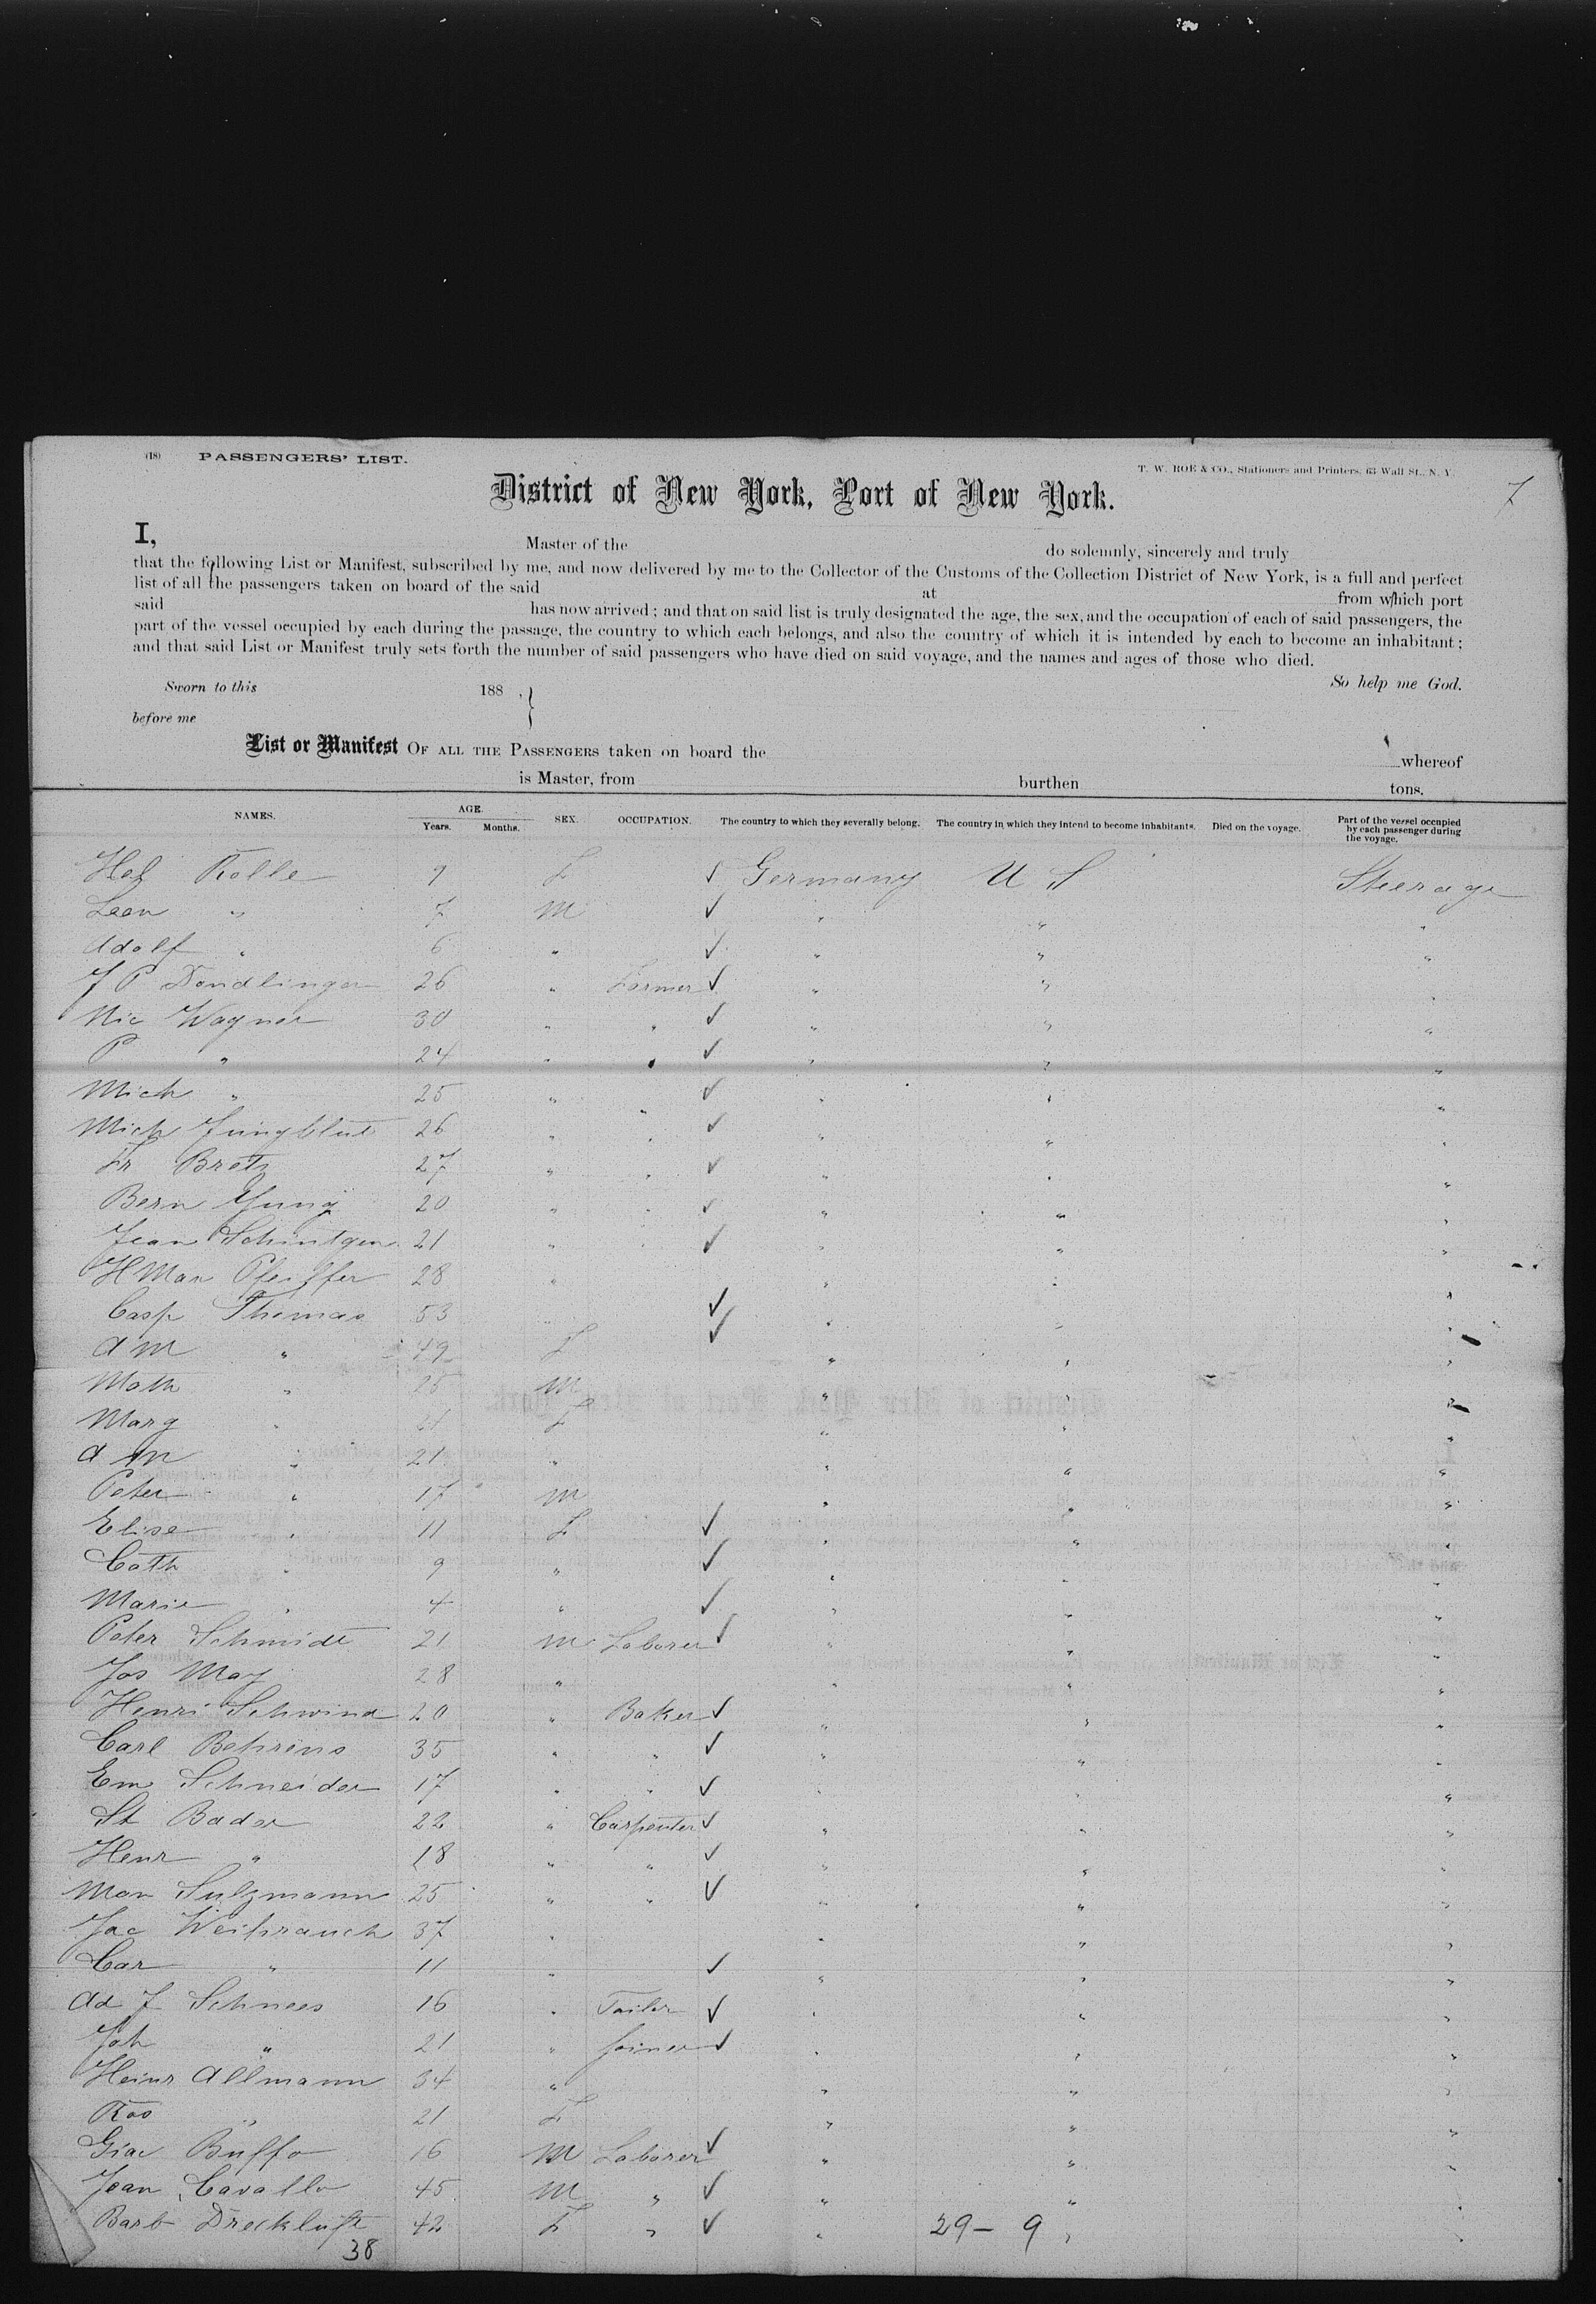 (18) PASSENGERS' LIST.
T. W. ROE & CO., Stationers and Printers, 63 Wall St., N. Y.
7
District of New York, Port of New York.
I, Master of the do solemnly, sincerely and truly
that the following List or Manifest, subscribed by me, and now delivered by me to the Collector of the Customs of the Collection District of New York, is a full and perfect
list of all the passengers taken on board of the said at from which port
said has now arrived; and that on said list is truly designated the age, the sex, and the occupation of each of said passengers, the
part of the vessel occupied by each during the passage, the country to which each belongs, and also the country of which it is intended by each to become an inhabitant;
and that said List or Manifest truly sets forth the number of said passengers who have died on said voyage, and the names and ages of those who died.
So help me God.
Sworn to this 188 , }
before me
List or Manifest OF ALL THE PASSENGERS taken on board the whereof
is Master, from burthen tons.
NAMES. AGE. Years. Months. SEX. OCCUPATION. The country to which they severally belong. The country in which they intend to become inhabitants. Died on the voyage. Part of the vessel occupied by each passenger during the voyage.
Hel Rolle 9 F ✓ Germany U S Steerage
Leon " 7 M ✓ " " "
Adolf " 6 " ✓ " " "
J P Dondlinger 26 " Farmer ✓ " " "
Nic Wagner 30 " " ✓ " " "
P " 24 " " ✓ " " "
Mich " 25 " " ✓ " " "
Mich Jungblut 26 " " ✓ " " "
Fr Bretz 27 " " ✓ " " "
Bern Yung 20 " " ✓ " " "
Jean Schintgen 21 " " ✓ " " "
H Man Pfeiffer 28 " " " "
Casp Thomas 53 " ✓ " " "
A M " 49 F ✓ " " "
Math " 25 M " " "
Marg " 21 F " " "
A M " 21 " " " "
Peter " 17 M " " "
Elise " 11 F ✓ " " "
Cath " 9 " ✓ " " "
Marie " 4 " ✓ " " "
Peter Schmidt 21 M Laborer ✓ " " "
Jos May 28 " " " "
Henri Schwind 20 " Baker ✓ " " "
Carl Behrens 35 " " ✓ " " "
Em Schneider 17 " " ✓ " " "
St Bader 22 " Carpenter ✓ " " "
Henr " 18 " " ✓ " " "
Man Sulzmann 25 " " ✓ " " "
Jac Weihrauch 37 " " " "
Car " 11 " ✓ " " "
Ad J Schnees 16 " Tailor ✓ " " "
Joh " 21 " Joiner ✓ " " "
Heinr Allmann 34 " " " "
Ros " 21 F " " "
Giac Buffo 16 M Laborer ✓ " " "
Jean Cavallo 45 M " ✓ " " "
Barb Dreckluft 42 F " ✓ " 29 – 9 " "
38